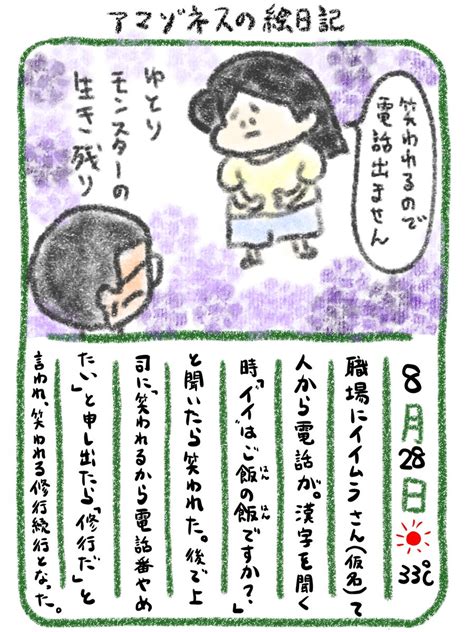 アマゾネスの絵日記
笑われるので
電話出ません
ゆとり
モンスターの
生き残り
8月28日 33℃
職場にイイムラさん(仮名)て
人から電話が。漢字を聞く
時「イイはご飯の飯ですか?」
はん
はん
と聞いたら笑われた。後で上
司に「笑われるから電話番やめ
たい」と申し出たら「修行だ」と
言われ、笑われる修行続行となった。